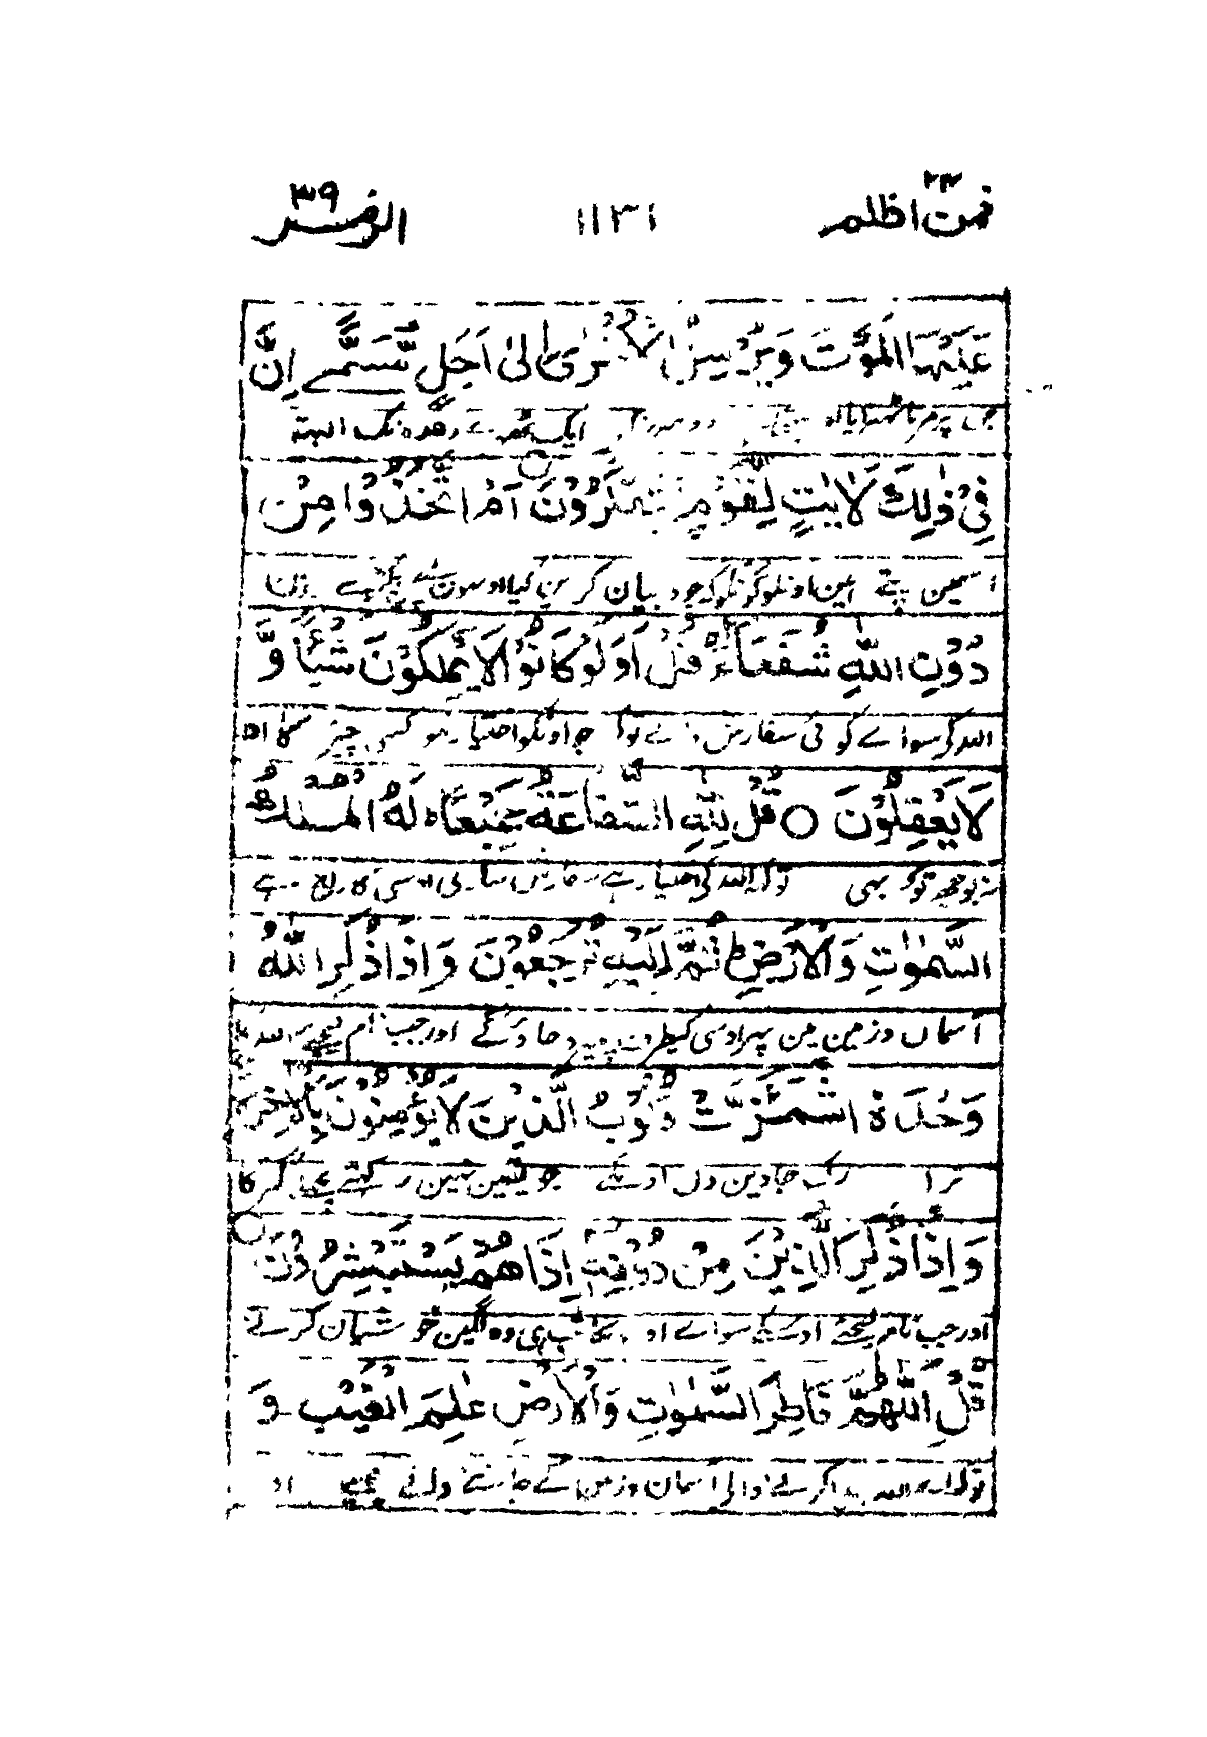 فمن اظلم ٢٤ ١١٣١ الزمر ٣٩
عَلَيْهَا الْمَوْتَ وَيُرْسِلُ الْاُخْرٰى اِلٰى اَجَلٍ مُّسَمًّى اِنَّ
جس پر مرنا ٹھہرایا اور ایک ٹھہرے وعدہ تک البتہ
فِىْ ذٰلِكَ لَاٰيٰتٍ لِّقَوْمٍ يَّتَفَكَّرُوْنَ ○ اَمِ اتَّخَذُوْا مِنْ
اسمین پتے ہین اونلوگونکو جو دہیان کرین کیا اونہون نے پکڑے ہین
دُوْنِ اللّٰهِ شُفَعَآءَ قُلْ اَوَلَوْ كَانُوْا لَا يَمْلِكُوْنَ شَيْئًا وَّ
اللہ کے سواے کوئی سفارش والے توکہ جو اونکو اختیار نہو کسی چیز کا اور
لَا يَعْقِلُوْنَ ○ قُلْ لِّلّٰهِ الشَّفَاعَةُ جَمِيْعًا لَهٗ مُلْكُ
نہ بوجھ توکہ بہی توکہ اللہ کی اختیار ہے سفارش ساری اوسی کا راج ہے
السَّمٰوٰتِ وَالْاَرْضِ ثُمَّ اِلَيْهِ تُرْجَعُوْنَ وَاِذَا ذُكِرَ اللّٰهُ
آسمان و زمین مین پہر اوسی کیطرف پہیرے جاوگے اور جب نام لیجیے اللہ
وَحْدَهُ اشْمَاَزَّتْ قُلُوْبُ الَّذِيْنَ لَا يُؤْمِنُوْنَ بِالْاٰخِرَةِ
نرا رک جاوین دل اونکے جو یقین نہین رکہتے پچھلے گہر کا
وَاِذَا ذُكِرَ الَّذِيْنَ مِنْ دُوْنِهٖ اِذَا هُمْ يَسْتَبْشِرُوْنَ ○
اور جب نام لیجئے اوسکے سواے اورونکا تب ہی وہ لگین خوشیان کرنے
قُلِ اللّٰهُمَّ فَاطِرَ السَّمٰوٰتِ وَالْاَرْضِ عٰلِمَ الْغَيْبِ وَ
توکہ اے اللہ پیدا کرنے والی آسمان و زمین کے جاننے والے چھپے اور